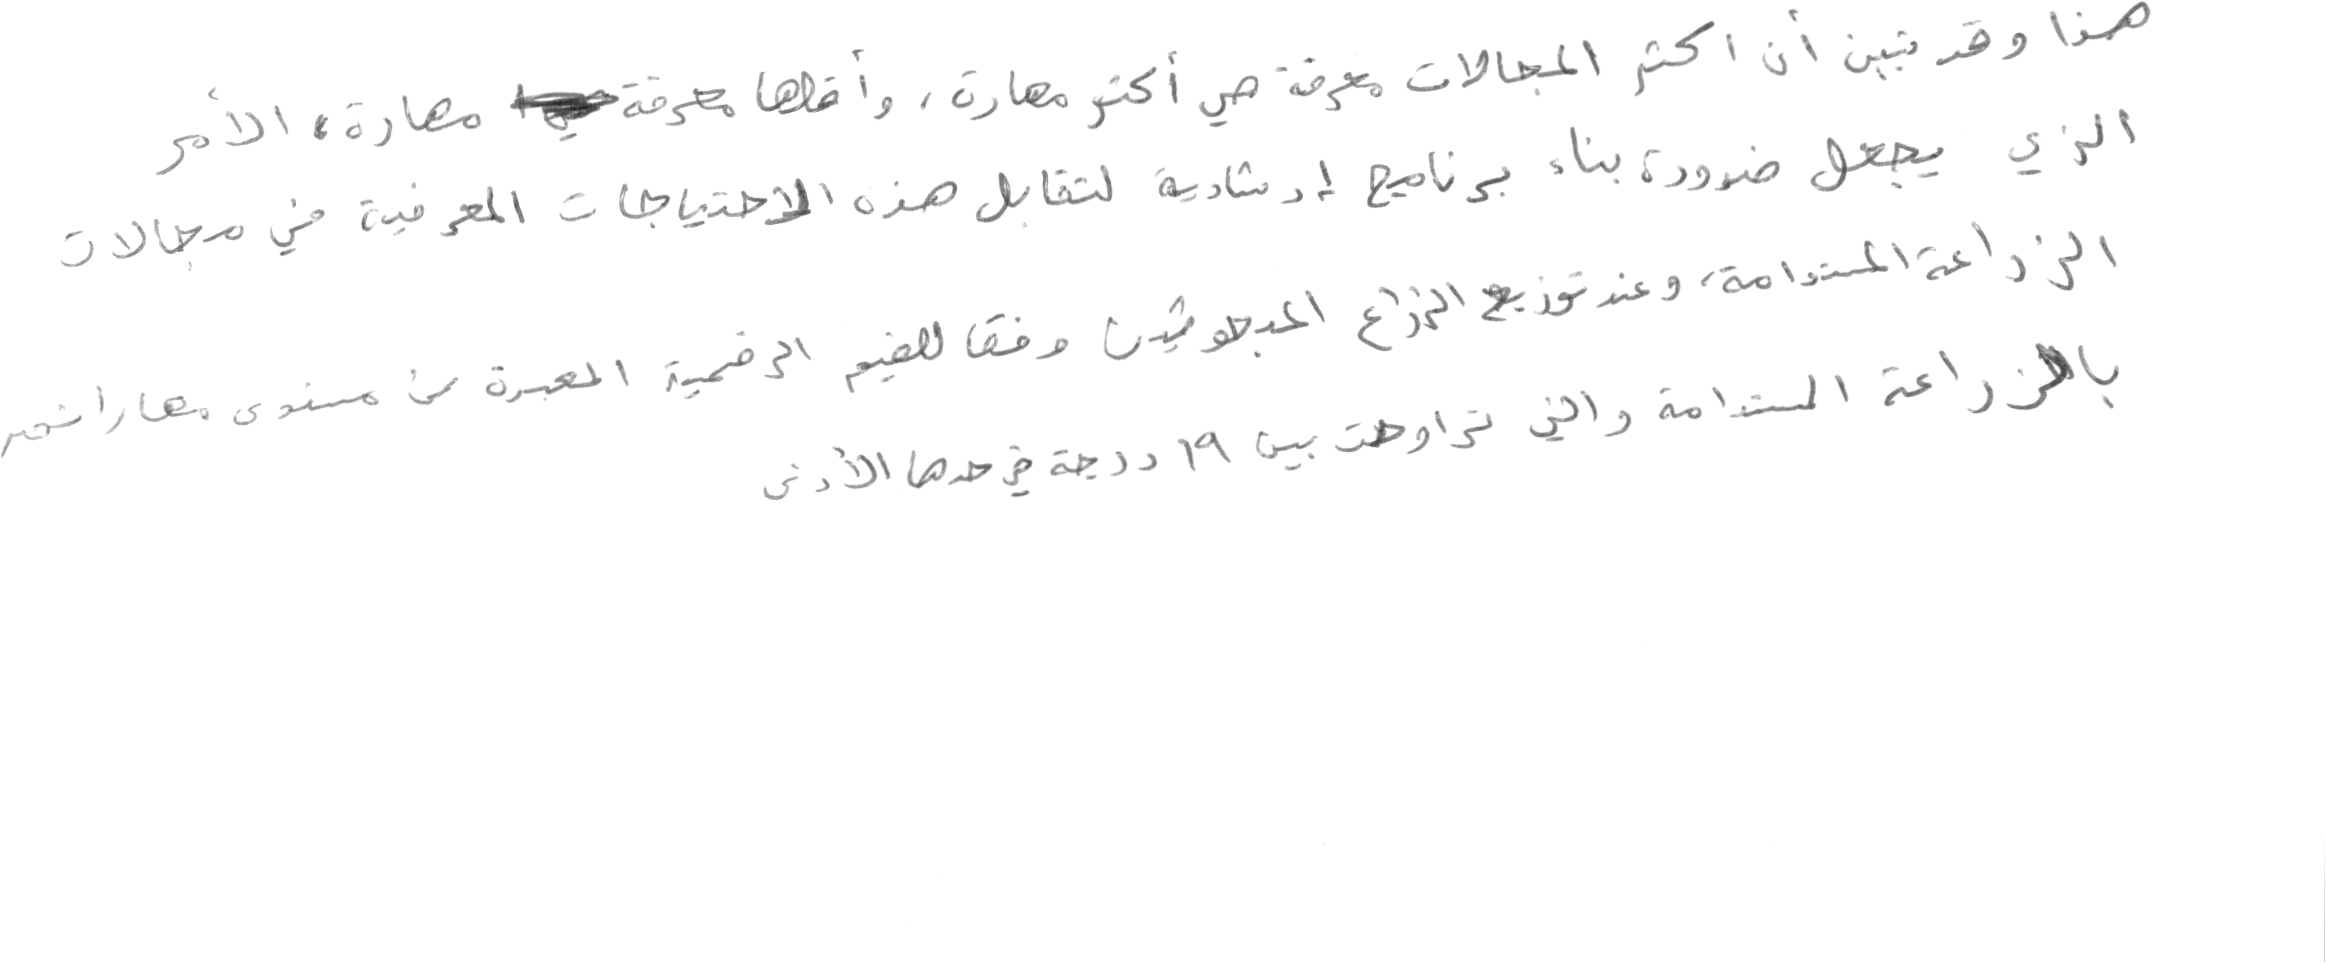 هذا وقد تبين أن اكثر المجالات معرفة هي أكثر مهارة، وأقلها معرفة مهارة، الأمر
الذي يجعل ضرورة بناء برنامج إرشادية لتقابل هذه الاحتياجات المعرفية في مجالات
الزراعة المستدامة، وعند توزيع الزراع المبحوثين وفقا للقيم الرقمية المعبرة عن مستوى مهاراتهم
بالزراعة المستدامة والتي تراوحت بين ١٩ درجة في حدها الأدنى